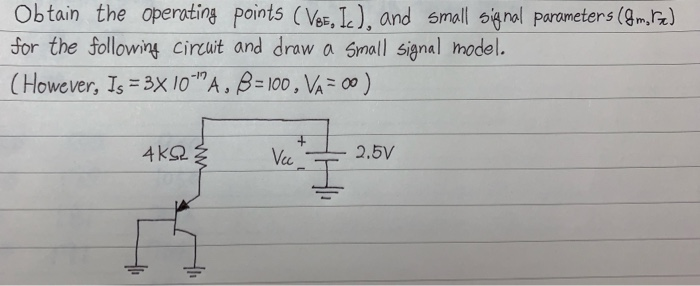 Obtain the operating points (VBE, Ic), and small signal parameters (gm, rπ)
for the following circuit and draw a small signal model.
(However, Is = 3X10⁻¹⁷A, β=100, VA = ∞)
4kΩ
+
Vcc
-
2.5V